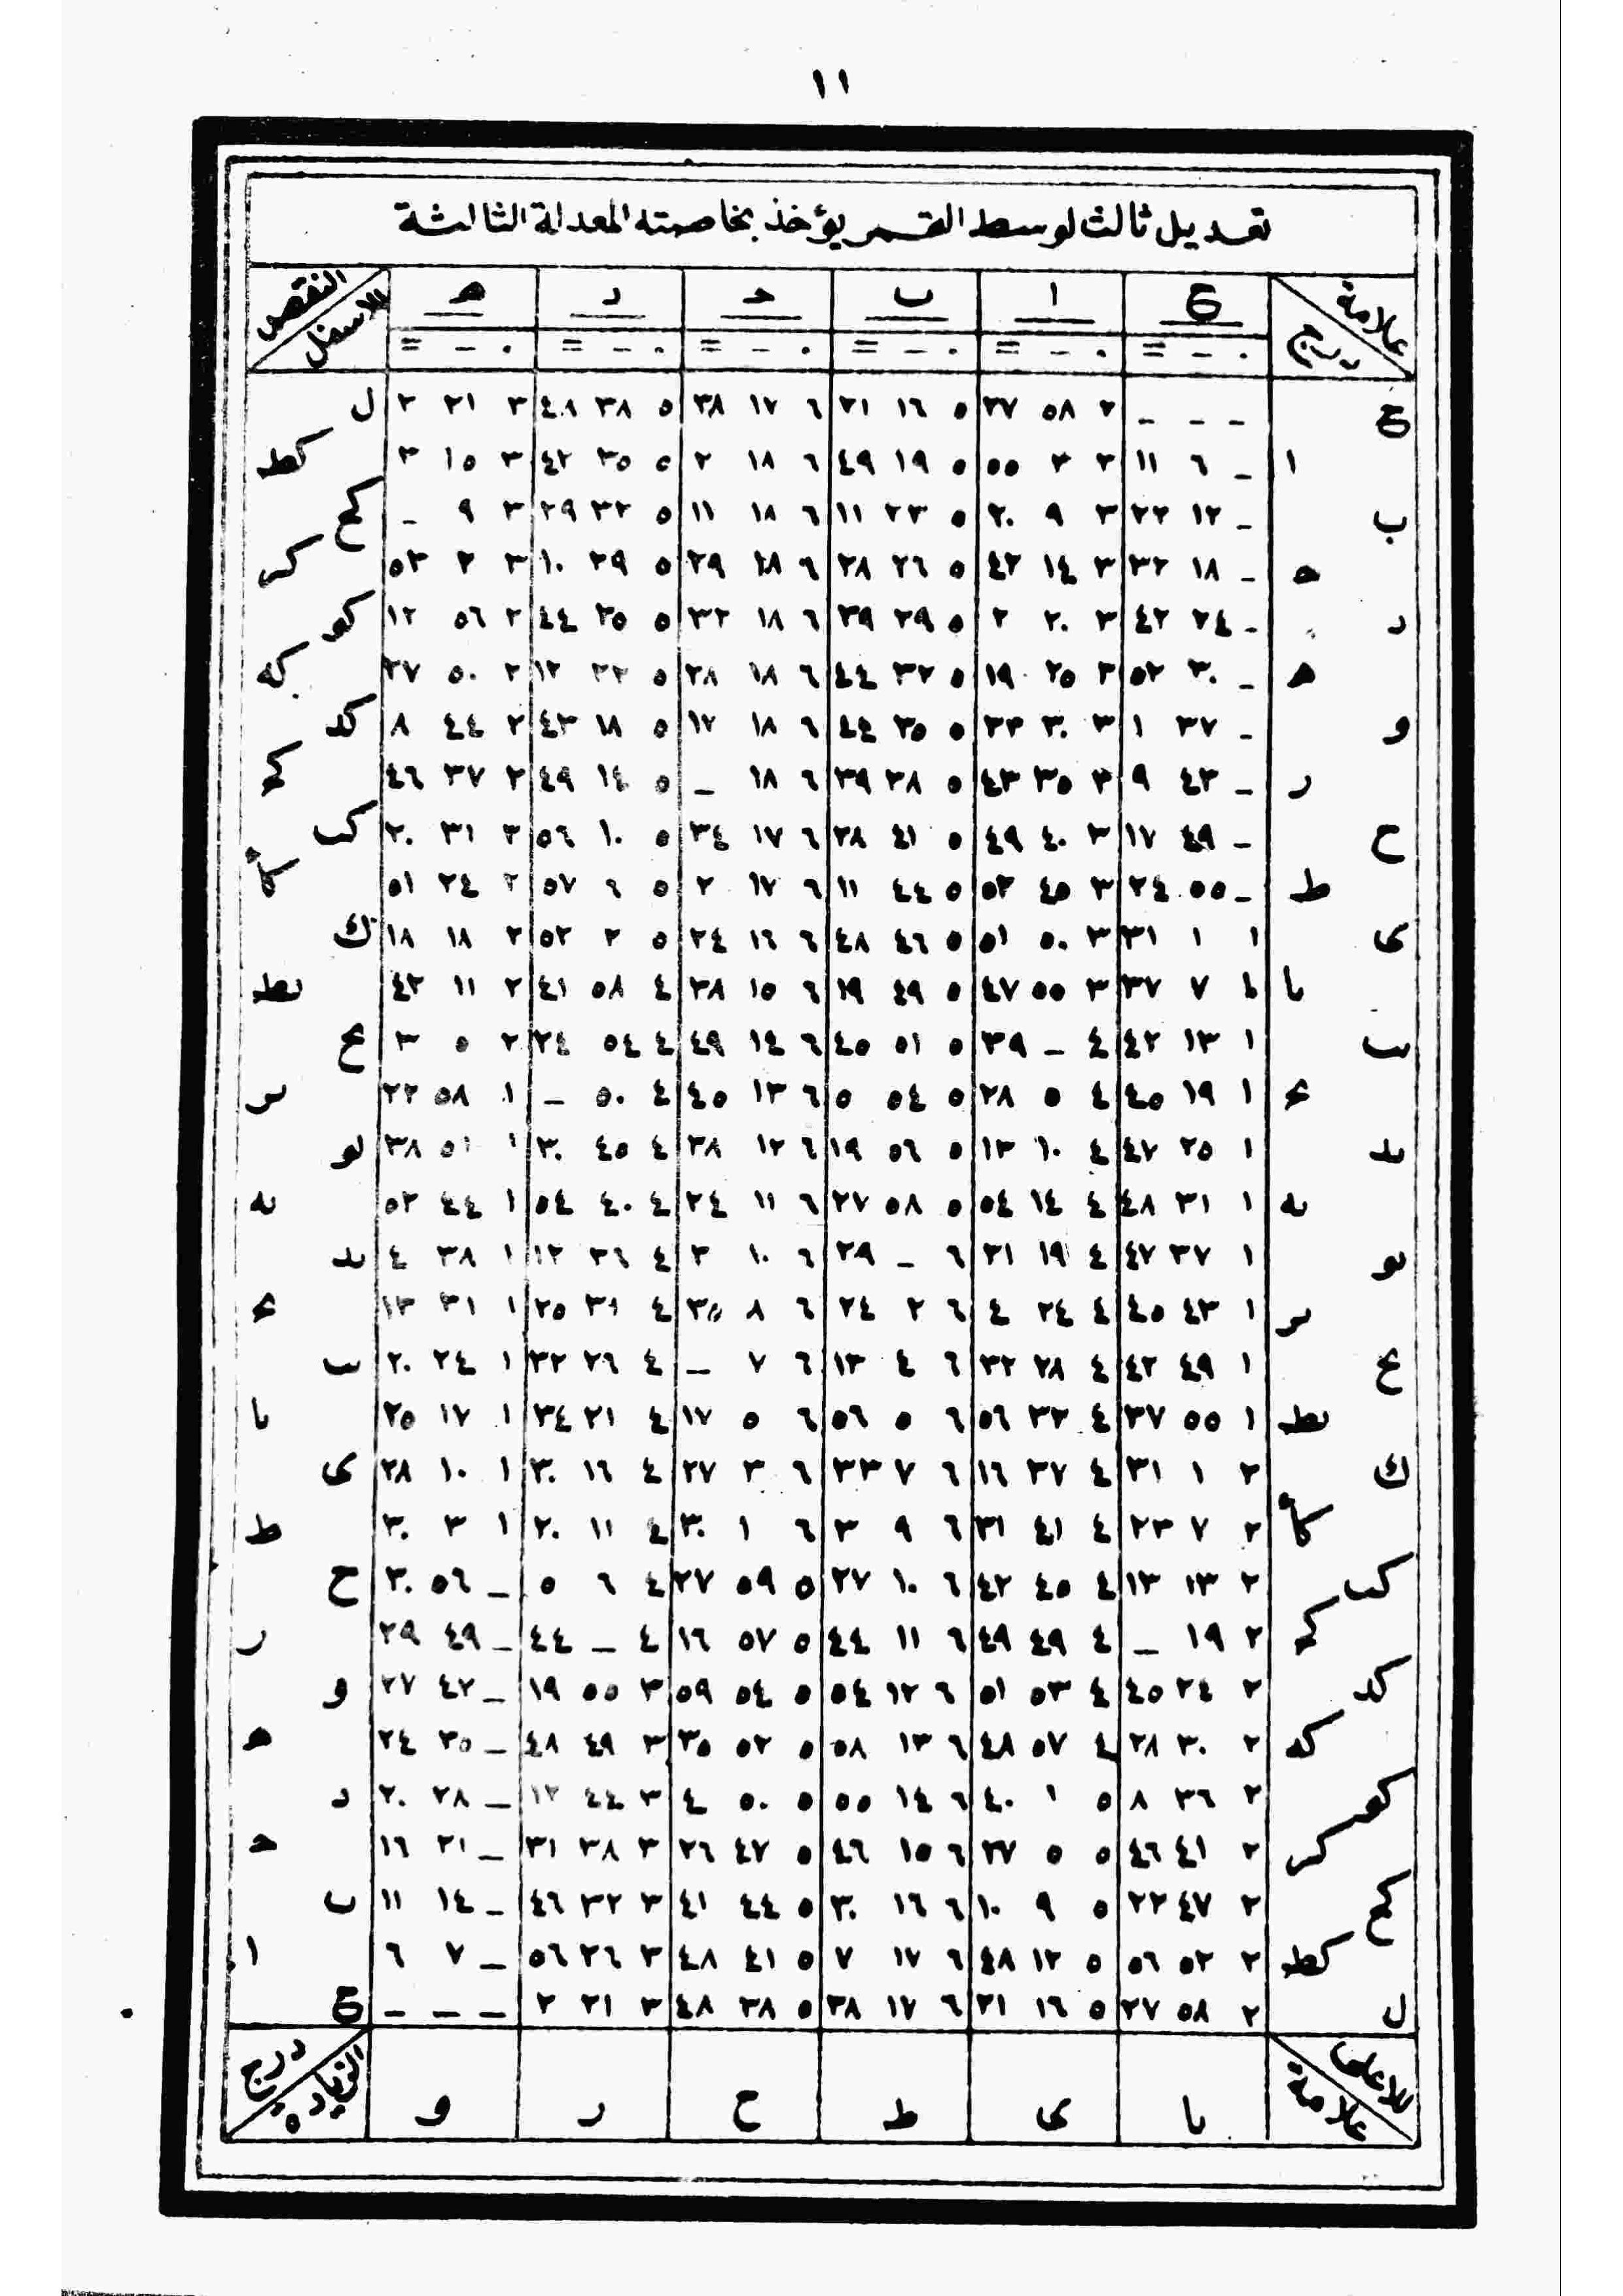 ١١
تعديل ثالث لوسط القمر يؤخذ بخاصته المعدلة الثالثة
علامة درج ع ا ب ح د ه النقص للاسفل
. - = . - = . - = . - = . - = . - =
ع - - - ٢ ٥٨ ٢٧ ٥ ١٦ ٢١ ٦ ١٧ ٣٨ ٥ ٣٨ ٤٨ ٣ ٢١ ٢ ل
ا - ٦ ١١ ٣ ٣ ٥٥ ٥ ١٩ ٤٩ ٦ ١٨ ٢ ٥ ٣٥ ٤٢ ٣ ١٥ ٣ كط
ب - ١٢ ٢٢ ٣ ٩ ٢٠ ٥ ٢٣ ١١ ٦ ١٨ ١١ ٥ ٣٢ ٢٩ ٣ ٩ - كح
ح - ١٨ ٣٢ ٣ ١٤ ٤٢ ٥ ٢٦ ٢٨ ٦ ١٨ ٢٩ ٥ ٢٩ ١٠ ٣ ٢ ٥٣ كر
د - ٢٤ ٤٢ ٣ ٢٠ ٢ ٥ ٢٩ ٣٩ ٦ ١٨ ٣٢ ٥ ٢٥ ٤٤ ٢ ٥٦ ١٢ كو
ه - ٣٠ ٥٢ ٣ ٢٥ ١٩ ٥ ٣٢ ٤٤ ٦ ١٨ ٢٨ ٥ ٢٢ ١٢ ٢ ٥٠ ٢٧ كه
و - ٣٧ ١ ٣ ٣٠ ٣٣ ٥ ٣٥ ٤٤ ٦ ١٨ ١٧ ٥ ١٨ ٤٣ ٢ ٤٤ ٨ كد
ر - ٤٣ ٩ ٣ ٣٥ ٤٣ ٥ ٣٨ ٣٩ ٦ ١٨ - ٥ ١٤ ٤٩ ٢ ٣٧ ٤٦ كح
ح - ٤٩ ١٧ ٣ ٤٠ ٤٩ ٥ ٤١ ٢٨ ٦ ١٧ ٣٤ ٥ ١٠ ٥٦ ٢ ٣١ ٢٠ كب
ط - ٥٥ ٢٤ ٣ ٤٥ ٥٢ ٥ ٤٤ ١١ ٦ ١٧ ٢ ٥ ٦ ٥٧ ٢ ٢٤ ٥١ كا
ى ١ ١ ٣١ ٣ ٥٠ ٥١ ٥ ٤٦ ٤٨ ٦ ١٦ ٢٤ ٥ ٢ ٥٢ ٢ ١٨ ١٨ ك
يا ١ ٧ ٣٧ ٣ ٥٥ ٤٧ ٥ ٤٩ ١٩ ٦ ١٥ ٣٨ ٤ ٥٨ ٤١ ٢ ١١ ٤٢ يط
يب ١ ١٣ ٤٢ ٤ - ٣٩ ٥ ٥١ ٤٥ ٦ ١٤ ٤٩ ٤ ٥٤ ٢٤ ٢ ٥ ٣ يح
يح ١ ١٩ ٤٥ ٤ ٥ ٢٨ ٥ ٥٤ ٥ ٦ ١٣ ٤٥ ٤ ٥٠ - ١ ٥٨ ٢٢ ير
يد ١ ٢٥ ٤٧ ٤ ١٠ ١٣ ٥ ٥٦ ١٩ ٦ ١٢ ٣٨ ٤ ٤٥ ٣٠ ١ ٥١ ٣٨ يو
يه ١ ٣١ ٤٨ ٤ ١٤ ٥٤ ٥ ٥٨ ٢٧ ٦ ١١ ٢٤ ٤ ٤٠ ٥٤ ١ ٤٤ ٥٢ يه
يو ١ ٣٧ ٤٧ ٤ ١٩ ٣١ ٦ - ٢٩ ٦ ١٠ ٣ ٤ ٣٦ ١٢ ١ ٣٨ ٤ يد
ير ١ ٤٣ ٤٥ ٤ ٢٤ ٤ ٦ ٢ ٢٤ ٦ ٨ ٣٥ ٤ ٣١ ٢٥ ١ ٣١ ١٣ يح
يح ١ ٤٩ ٤٢ ٤ ٢٨ ٣٢ ٦ ٤ ١٣ ٦ ٧ - ٤ ٢٦ ٣٢ ١ ٢٤ ٢٠ يب
يط ١ ٥٥ ٣٧ ٤ ٣٢ ٥٦ ٦ ٥ ٥٦ ٦ ٥ ١٧ ٤ ٢١ ٣٤ ١ ١٧ ٢٥ يا
ك ٢ ١ ٣١ ٤ ٣٧ ١٦ ٦ ٧ ٣٣ ٦ ٣ ٢٧ ٤ ١٦ ٣٠ ١ ١٠ ٢٨ ى
كا ٢ ٧ ٢٣ ٤ ٤١ ٣١ ٦ ٩ ٣ ٦ ١ ٣٠ ٤ ١١ ٢٠ ١ ٣ ٣٠ ط
كب ٢ ١٣ ١٣ ٤ ٤٥ ٤٢ ٦ ١٠ ٢٧ ٥ ٥٩ ٢٧ ٤ ٦ ٥ - ٥٦ ٣٠ ح
كح ٢ ١٩ - ٤ ٤٩ ٤٩ ٦ ١١ ٤٤ ٥ ٥٧ ١٦ ٤ - ٤٤ - ٤٩ ٢٩ ر
كد ٢ ٢٤ ٤٥ ٤ ٥٣ ٥١ ٦ ١٢ ٥٤ ٥ ٥٤ ٥٩ ٣ ٥٥ ١٩ - ٤٢ ٢٧ و
كه ٢ ٣٠ ٢٨ ٤ ٥٧ ٤٨ ٦ ١٣ ٥٨ ٥ ٥٢ ٣٥ ٣ ٤٩ ٤٨ - ٣٥ ٢٤ ه
كو ٢ ٣٦ ٨ ٥ ١ ٤٠ ٦ ١٤ ٥٥ ٥ ٥٠ ٤ ٣ ٤٤ ١٢ - ٢٨ ٢٠ د
كر ٢ ٤١ ٤٦ ٥ ٥ ٢٧ ٦ ١٥ ٤٦ ٥ ٤٧ ٢٦ ٣ ٣٨ ٣١ - ٢١ ١٦ ح
كح ٢ ٤٧ ٢٢ ٥ ٩ ١٠ ٦ ١٦ ٣٠ ٥ ٤٤ ٤١ ٣ ٣٢ ٤٦ - ١٤ ١١ ب
كط ٢ ٥٢ ٥٦ ٥ ١٢ ٤٨ ٦ ١٧ ٧ ٥ ٤١ ٤٨ ٣ ٢٦ ٥٦ - ٧ ٦ ا
ل ٢ ٥٨ ٢٧ ٥ ١٦ ٢١ ٦ ١٧ ٣٨ ٥ ٣٨ ٤٨ ٣ ٢١ ٢ - - - ع
للاعلى علامة يا ى ط ح ر و درج الزيادة